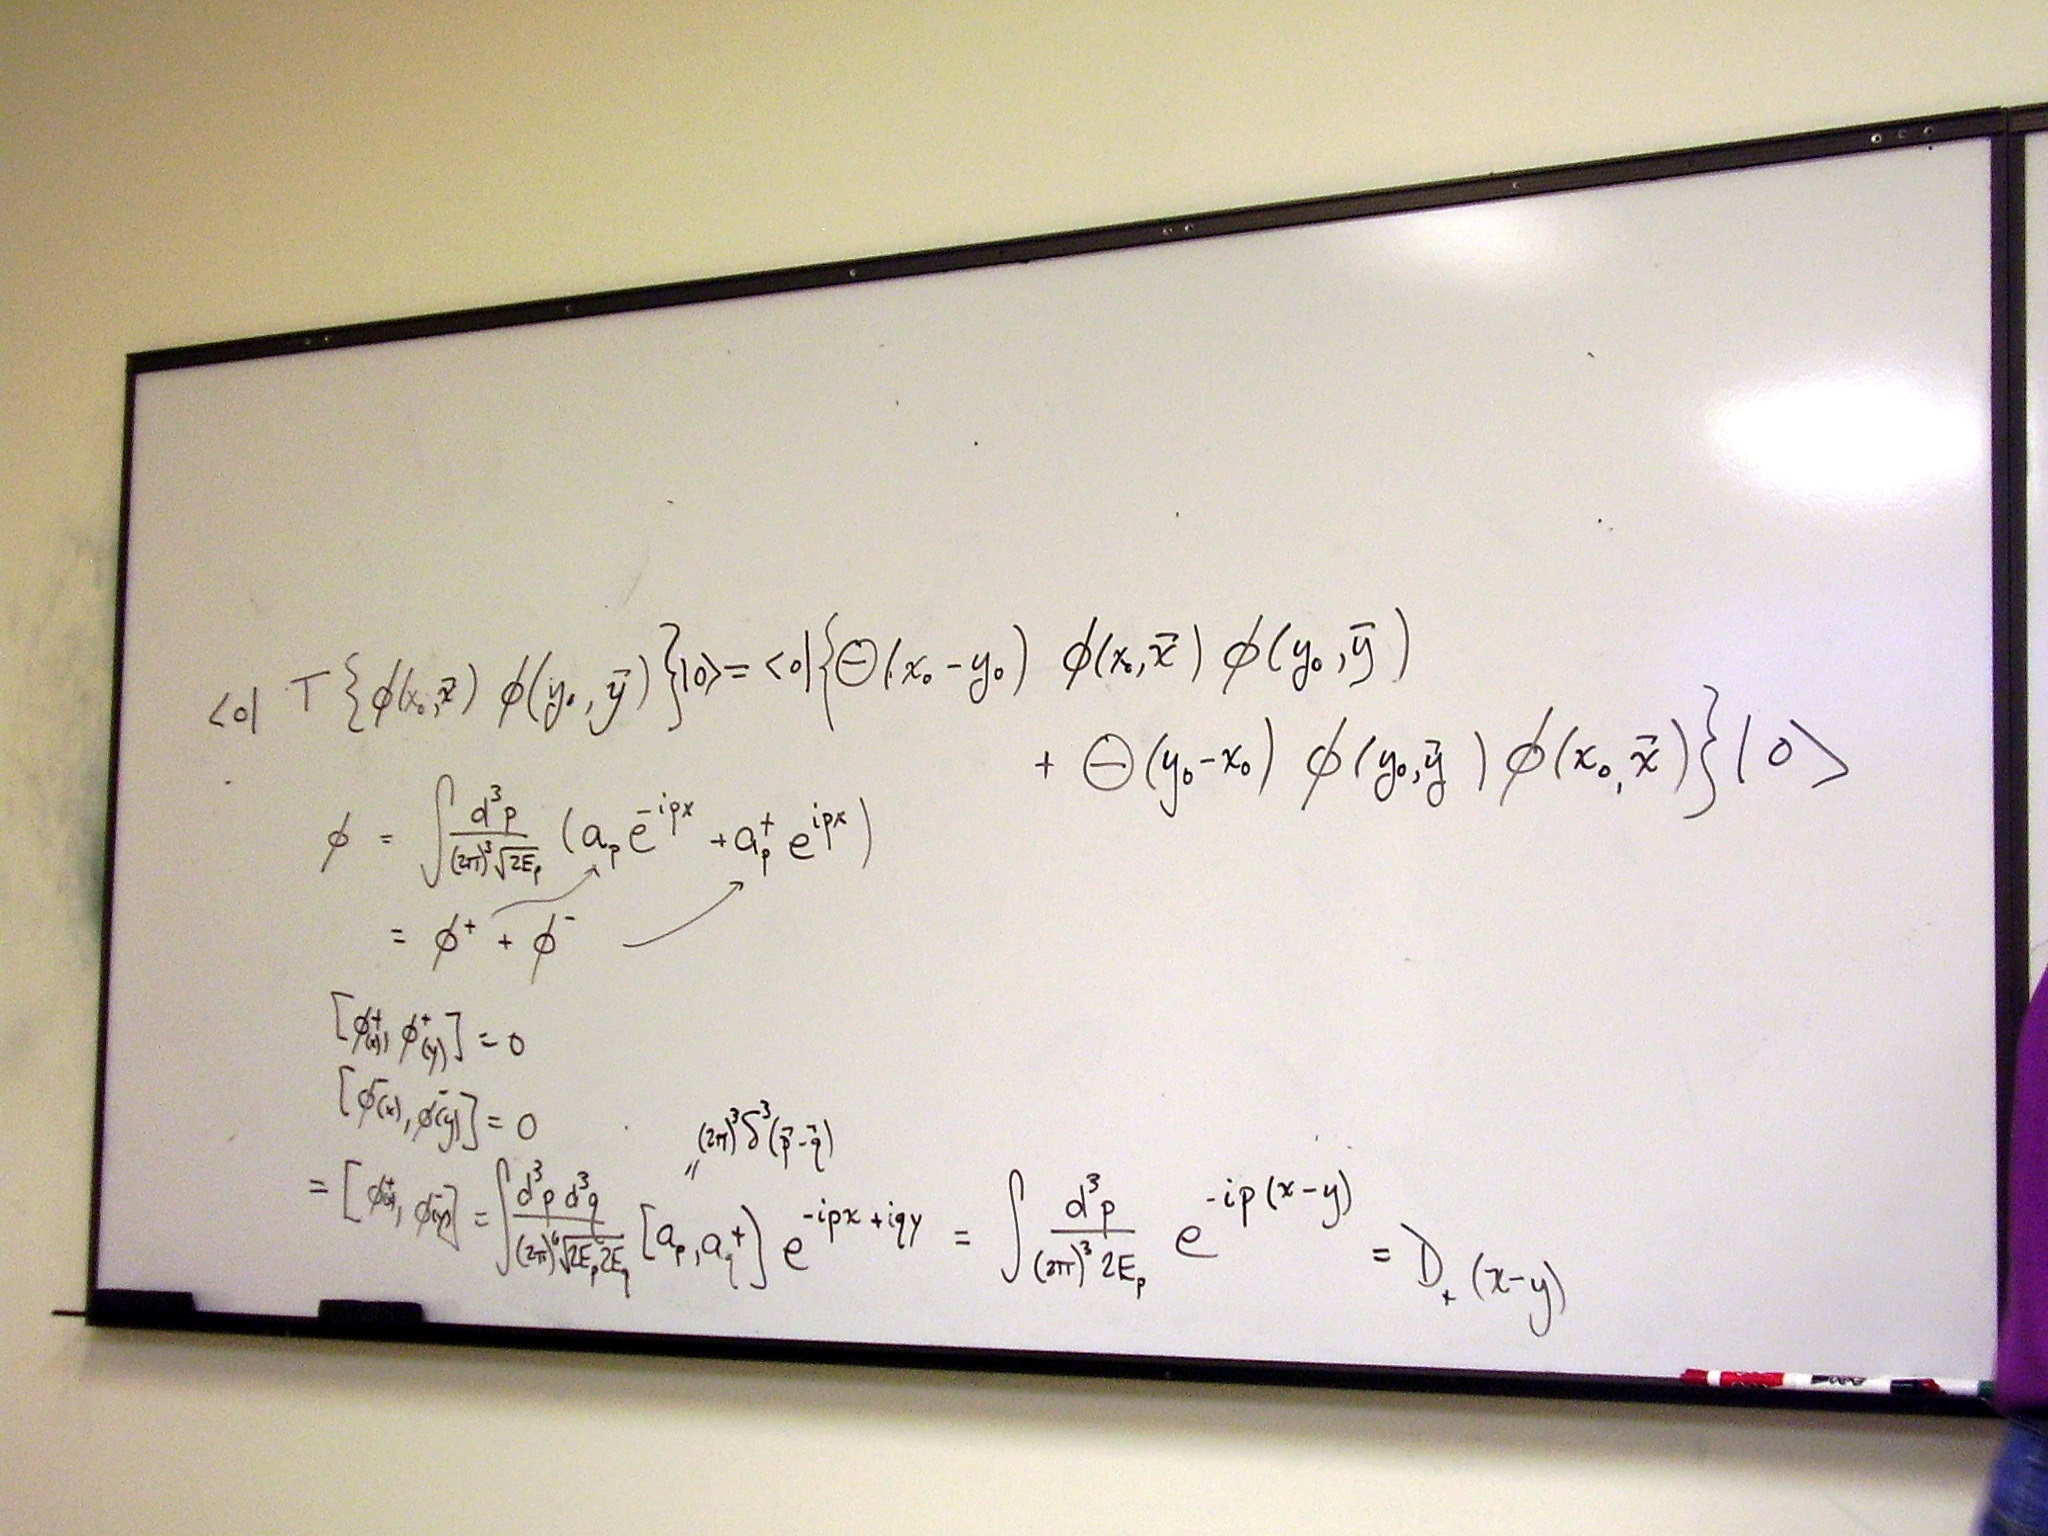 <0| T{ϕ(x₀,x⃗) ϕ(y₀,y⃗)}|0> = <0|{Θ(x₀-y₀) ϕ(x₀,x⃗) ϕ(y₀,y⃗)
+ Θ(y₀-x₀) ϕ(y₀,y⃗) ϕ(x₀,x⃗)}|0>
ϕ = ∫ d³p/((2π)³√(2E_p)) (a_p e^{-ipx} + a_p^† e^{ipx})
= ϕ⁺ + ϕ⁻
[ϕ⁺(x), ϕ⁺(y)] = 0
[ϕ⁻(x), ϕ⁻(y)] = 0
(2π)³δ³(p⃗-q⃗)
"
= [ϕ⁺(x), ϕ⁻(y)] = ∫ d³p d³q/((2π)⁶√(2E_p 2E_q)) [a_p, a_q^†] e^{-ipx+iqy} = ∫ d³p/((2π)³ 2E_p) e^{-ip(x-y)} = D₊(x-y)